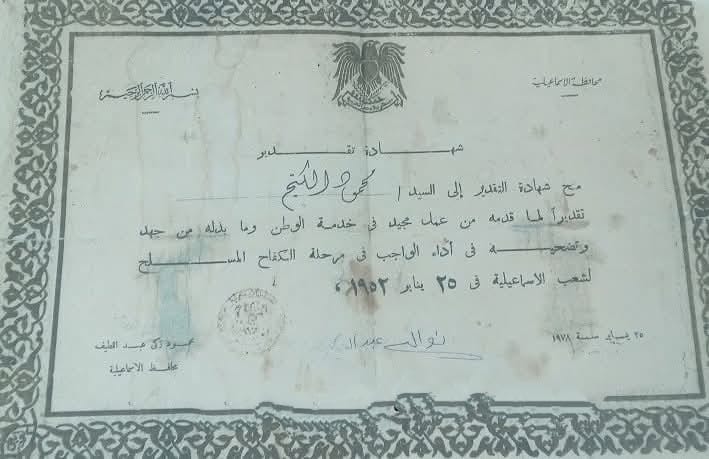 محافظة الاسماعيلية
بسم الله الرحمن الرحيم
شهادة تقدير
منح شهادة التقدير إلى السيد / محمود الكبتح
تقديراً لما قدمه من عمل مجيد فى خدمة الوطن وما بذله من جهد
وتضحيــــه فى أداء الواجب فى مرحلة الكفاح المســـلح
لشعب الاسماعيلية فى ٢٥ يناير ١٩٥٢ ،
٢٥ يناير سنة ١٩٧٨
محمود زكى عبد اللطيف
محافظ الاسماعيلية